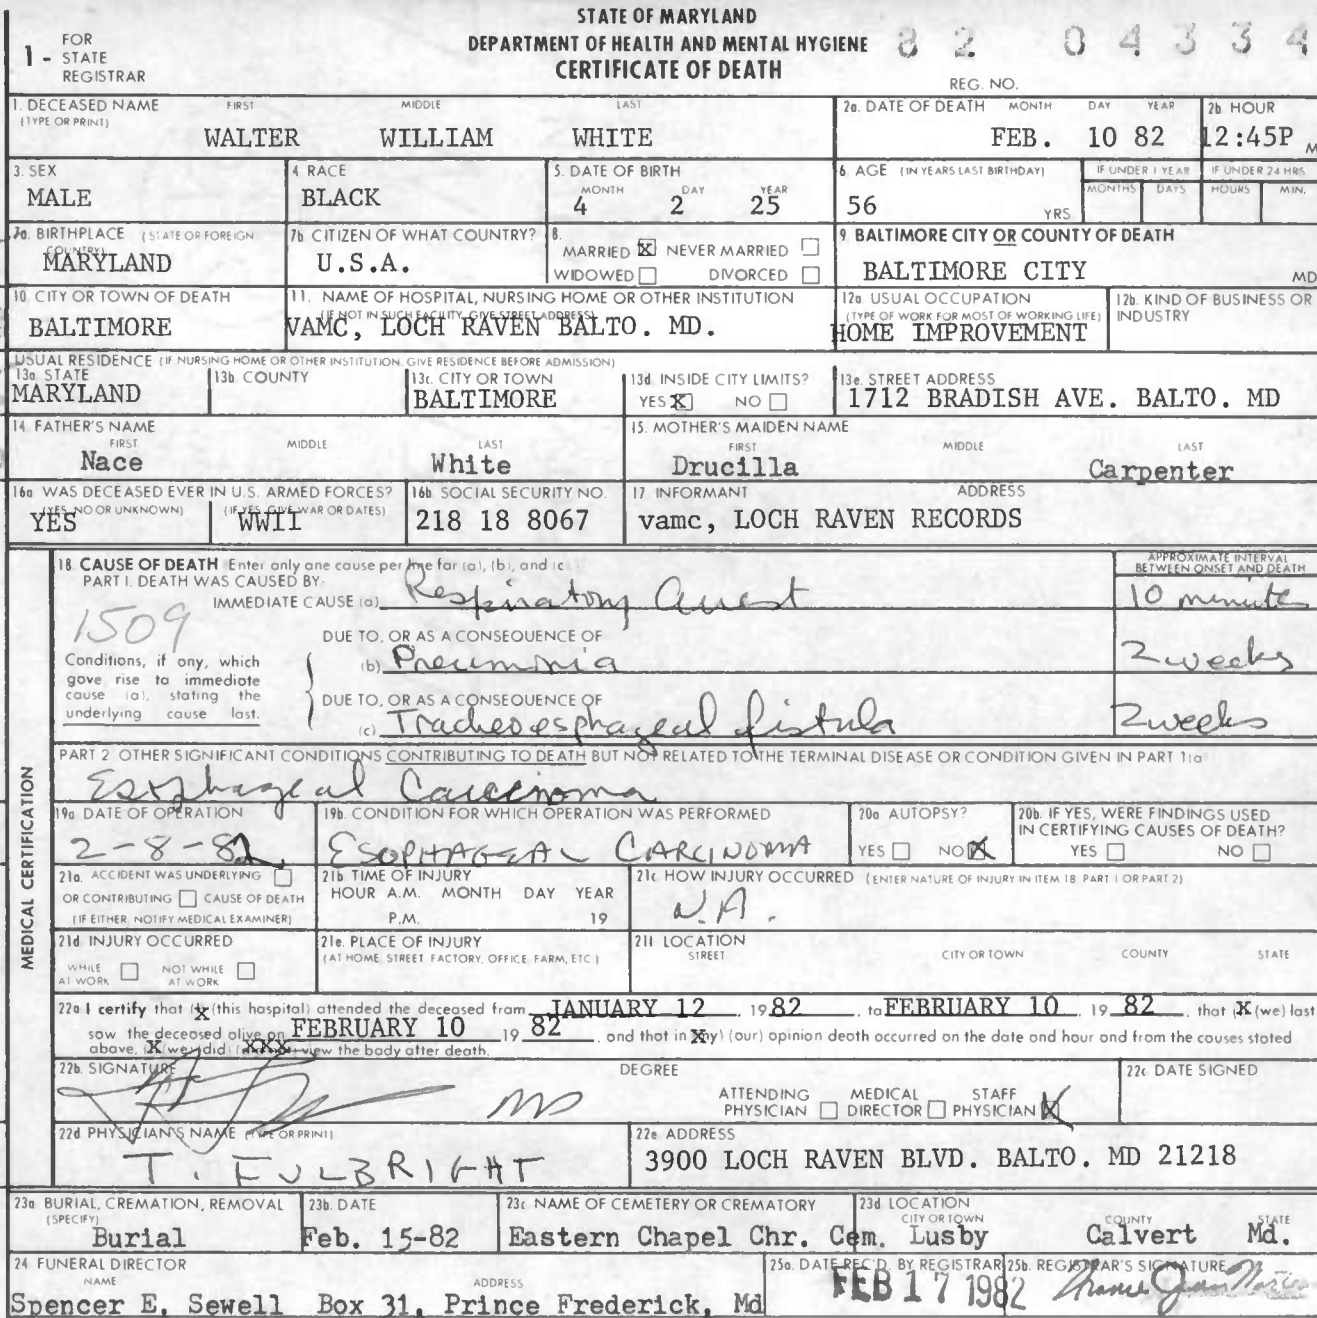 STATE OF MARYLAND
DEPARTMENT OF HEALTH AND MENTAL HYGIENE
CERTIFICATE OF DEATH
1 - FOR STATE REGISTRAR
82 04334
REG. NO.
1. DECEASED NAME FIRST MIDDLE LAST
(TYPE OR PRINT)
WALTER WILLIAM WHITE
2a. DATE OF DEATH MONTH DAY YEAR
FEB. 10 82
2b HOUR
12:45P M
3. SEX
MALE
4 RACE
BLACK
5. DATE OF BIRTH
MONTH DAY YEAR
4 2 25
6. AGE (IN YEARS LAST BIRTHDAY)
56 YRS
IF UNDER 1 YEAR
MONTHS DAYS
IF UNDER 24 HRS
HOURS MIN.
7a. BIRTHPLACE (STATE OR FOREIGN COUNTRY)
MARYLAND
7b CITIZEN OF WHAT COUNTRY?
U.S.A.
8.
MARRIED X NEVER MARRIED
WIDOWED DIVORCED
9. BALTIMORE CITY OR COUNTY OF DEATH
BALTIMORE CITY MD
10 CITY OR TOWN OF DEATH
BALTIMORE
11. NAME OF HOSPITAL, NURSING HOME OR OTHER INSTITUTION
(IF NOT IN SUCH FACILITY, GIVE STREET ADDRESS)
VAMC, LOCH RAVEN BALTO. MD.
12a USUAL OCCUPATION
(TYPE OF WORK FOR MOST OF WORKING LIFE)
HOME IMPROVEMENT
12b. KIND OF BUSINESS OR INDUSTRY
USUAL RESIDENCE (IF NURSING HOME OR OTHER INSTITUTION, GIVE RESIDENCE BEFORE ADMISSION)
13a STATE
MARYLAND
13b COUNTY
13c. CITY OR TOWN
BALTIMORE
13d INSIDE CITY LIMITS?
YES X NO
13e. STREET ADDRESS
1712 BRADISH AVE. BALTO. MD
14 FATHER'S NAME
FIRST MIDDLE LAST
Nace White
15. MOTHER'S MAIDEN NAME
FIRST MIDDLE LAST
Drucilla Carpenter
16a WAS DECEASED EVER IN U.S. ARMED FORCES?
(YES, NO OR UNKNOWN) (IF YES, GIVE WAR OR DATES)
YES WWII
16b SOCIAL SECURITY NO.
218 18 8067
17 INFORMANT ADDRESS
vamc, LOCH RAVEN RECORDS
MEDICAL CERTIFICATION
18 CAUSE OF DEATH Enter only one cause per line for (a), (b), and (c
PART I. DEATH WAS CAUSED BY:
APPROXIMATE INTERVAL BETWEEN ONSET AND DEATH
IMMEDIATE CAUSE (a) Respiratory arrest 10 minutes
1509
Conditions, if any, which gave rise to immediate cause (a), stating the underlying cause last.
DUE TO, OR AS A CONSEQUENCE OF
(b) Pneumonia 2 weeks
DUE TO, OR AS A CONSEQUENCE OF
(c) Tracheoesphageal fistula 2 weeks
PART 2 OTHER SIGNIFICANT CONDITIONS CONTRIBUTING TO DEATH BUT NOT RELATED TO THE TERMINAL DISEASE OR CONDITION GIVEN IN PART 1(a
Esophageal Carcinoma
19a DATE OF OPERATION
2-8-82
19b. CONDITION FOR WHICH OPERATION WAS PERFORMED
ESOPHAGEAL CARCINOMA
20a AUTOPSY?
YES NO X
20b. IF YES, WERE FINDINGS USED IN CERTIFYING CAUSES OF DEATH?
YES NO
21a. ACCIDENT WAS UNDERLYING
OR CONTRIBUTING CAUSE OF DEATH
(IF EITHER, NOTIFY MEDICAL EXAMINER)
21b TIME OF INJURY
HOUR A.M. MONTH DAY YEAR
P.M. 19
21c HOW INJURY OCCURRED (ENTER NATURE OF INJURY IN ITEM 18 PART 1 OR PART 2)
N.A.
21d INJURY OCCURRED
WHILE AT WORK NOT WHILE AT WORK
21e. PLACE OF INJURY
(AT HOME, STREET, FACTORY, OFFICE, FARM, ETC)
21f LOCATION
STREET CITY OR TOWN COUNTY STATE
22a I certify that (X (this hospital) attended the deceased from JANUARY 12 19 82 to FEBRUARY 10, 19 82, that X (we) last
saw the deceased alive on FEBRUARY 10 19 82, and that in Xmy) (our) opinion death occurred on the date and hour and from the causes stated
above, X (we) (did) (XXX view the body after death.
22b. SIGNATURE DEGREE
MD
ATTENDING PHYSICIAN MEDICAL DIRECTOR STAFF PHYSICIAN X
22c DATE SIGNED
22d PHYSICIAN'S NAME (TYPE OR PRINT)
T. FULBRIGHT
22e ADDRESS
3900 LOCH RAVEN BLVD. BALTO. MD 21218
23a BURIAL, CREMATION, REMOVAL
(SPECIFY)
Burial
23b. DATE
Feb. 15-82
23c NAME OF CEMETERY OR CREMATORY
Eastern Chapel Chr. Cem.
23d LOCATION
CITY OR TOWN COUNTY STATE
Lusby Calvert Md.
24 FUNERAL DIRECTOR
NAME ADDRESS
Spencer E. Sewell Box 31, Prince Frederick, Md
25a. DATE REC'D. BY REGISTRAR
FEB 17 1982
25b. REGISTRAR'S SIGNATURE